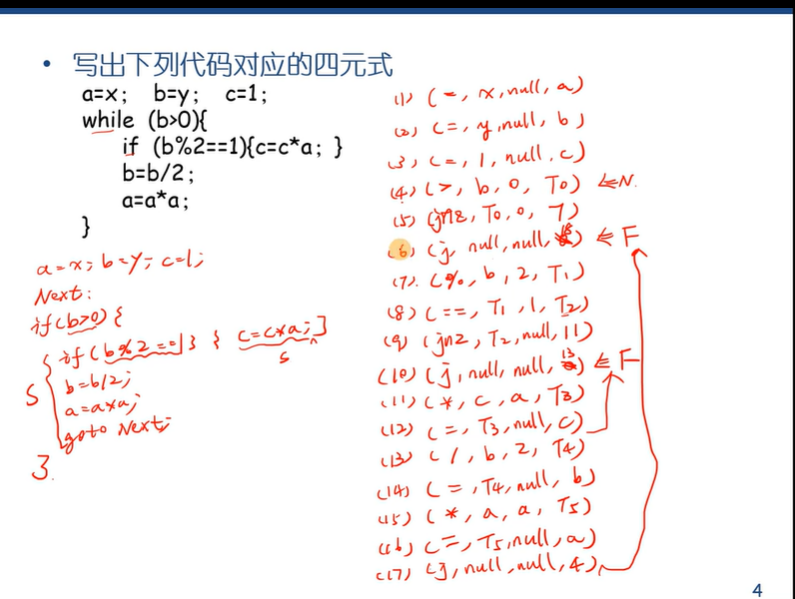 • 写出下列代码对应的四元式
a=x; b=y; c=1;
while (b>0){
if (b%2==1){c=c*a; }
b=b/2;
a=a*a;
}
a=x; b=y; c=1;
Next:
if(b>0) {
if(b%2==1) { c=c*a; }
S
b=b/2;
S
a=a*a;
goto Next;
}.
(1) (=, x, null, a)
(2) (=, y, null, b)
(3) (=, 1, null, c)
(4) (>, b, 0, T0) ⇐N.
(5) (jnz, T0, 0, 7)
(6) (j, null, null, 18) ⇐ F
(7). (%, b, 2, T1)
(8) (==, T1, 1, T2)
(9) (jnz, T2, null, 11)
(10) (j, null, null, 13) ⇐ F
(11) (*, c, a, T3)
(12) (=, T3, null, c)
(13) (/, b, 2, T4)
(14) (=, T4, null, b)
(15) (*, a, a, T5)
(16) (=, T5, null, a)
(17) (j, null, null, 4)
4